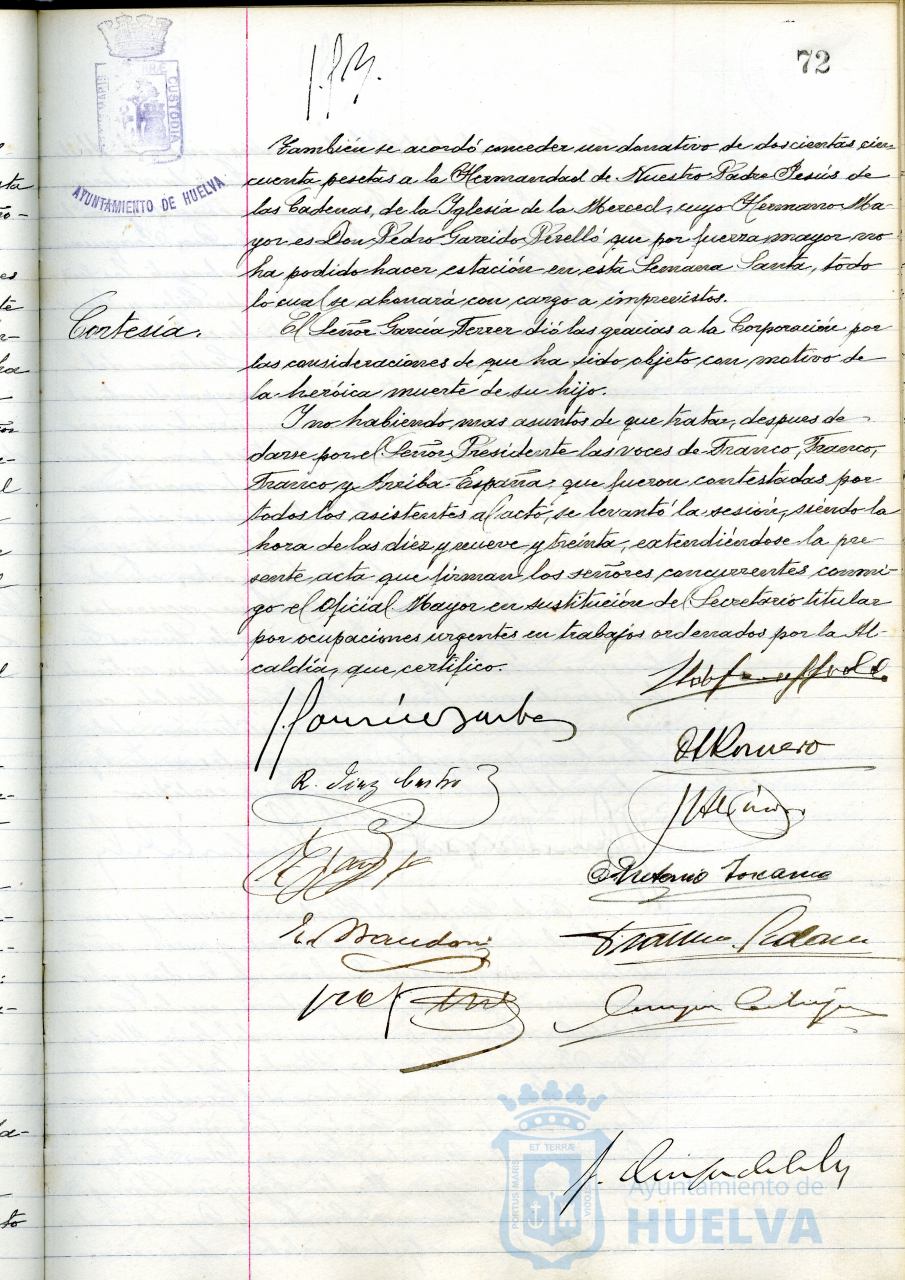 72
CUSTODIA
AYUNTAMIENTO DE HUELVA
También se acordó conceder un donativo de doscientas cin-
cuenta pesetas a la Hermandad de Nuestro Padre Jesús de
las Cadenas, de la Iglesia de la Merced, cuyo Hermano Ma-
yor es Don Pedro Garrido Perelló que por fuerza mayor no
ha podido hacer estación en esta Semana Santa, todo
lo cual se abonará con cargo a imprevistos.
Cortesía.
El Señor García Ferrer dió las gracias a la Corporación por
las consideraciones de que ha sido objeto con motivo de
la heróica muerte de su hijo.
Y no habiendo mas asuntos de que tratar, despues de
darse por el Señor Presidente las voces de Franco, Franco,
Franco y Arriba España, que fueron contestadas por
todos los asistentes al acto, se levantó la sesión, siendo la
hora de las diez y nueve y treinta, extendiéndose la pre-
sente acta que firman los señores concurrentes conmi-
go el Oficial Mayor en sustitución del Secretario titular
por ocupaciones urgentes en trabajos ordenados por la Al-
caldía, que certifico.
Romero
R. Diaz Castro
Antonio Toscano
PORTUS MARIS
ET TERRÆ
CUSTODIA
Ayuntamiento de
HUELVA